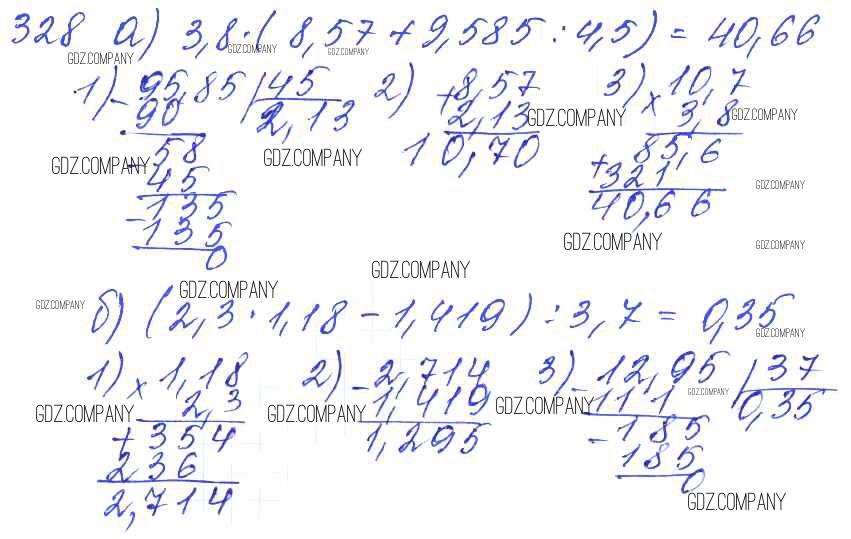 328 а) 3,8·(8,57+9,585:4,5)=40,66
GDZ.COMPANY GDZ.COMPANY GDZ.COMPANY
1) 95,85 | 45 2) 8,57 3) 10,7
- 90 2,13 + 2,13 × 3,8
GDZ.COMPANY GDZ.COMPANY
58 10,70 85,6
GDZ.COMPANY GDZ.COMPANY
- 45 + 321
GDZ.COMPANY
135 40,66
- 135
0
GDZ.COMPANY GDZ.COMPANY
GDZ.COMPANY
GDZ.COMPANY
GDZ.COMPANY
б) (2,3·1,18-1,419):3,7=0,35
GDZ.COMPANY
1) × 1,18 2) - 2,714 3) - 12,95 | 37
2,3 1,419 111 0,35
GDZ.COMPANY GDZ.COMPANY GDZ.COMPANY GDZ.COMPANY
+ 354 1,295 - 185
236 185
2,714 0
GDZ.COMPANY